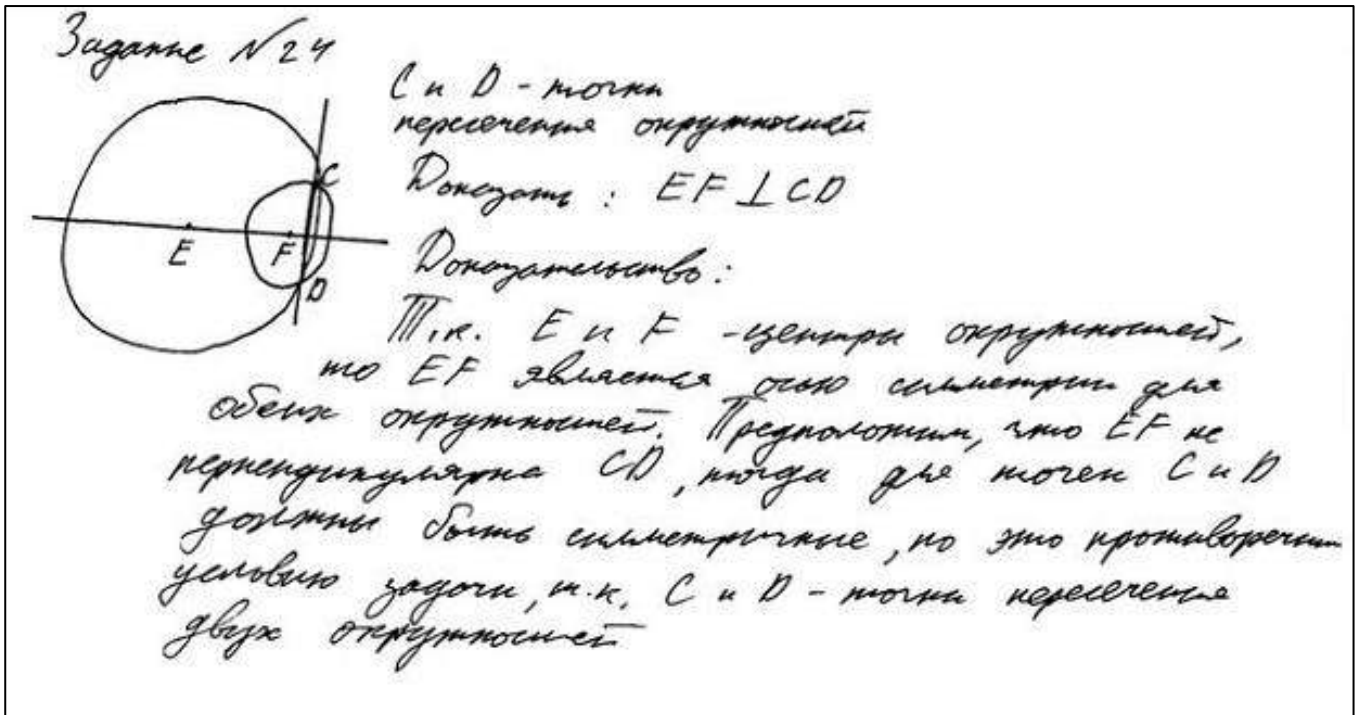 Задание №24
C и D - точки
пересечения окружностей
Доказать : EF ⊥ CD
C
E
F
D
Доказательство :
Т.к. E и F - центры окружностей,
то EF является осью симметрии для
обеих окружностей. Предположим, что EF не
перпендикулярна CD, тогда для точек C и D
должны быть симметричные, но это противоречит
условию задачи, т.к. C и D - точки пересечения
двух окружностей